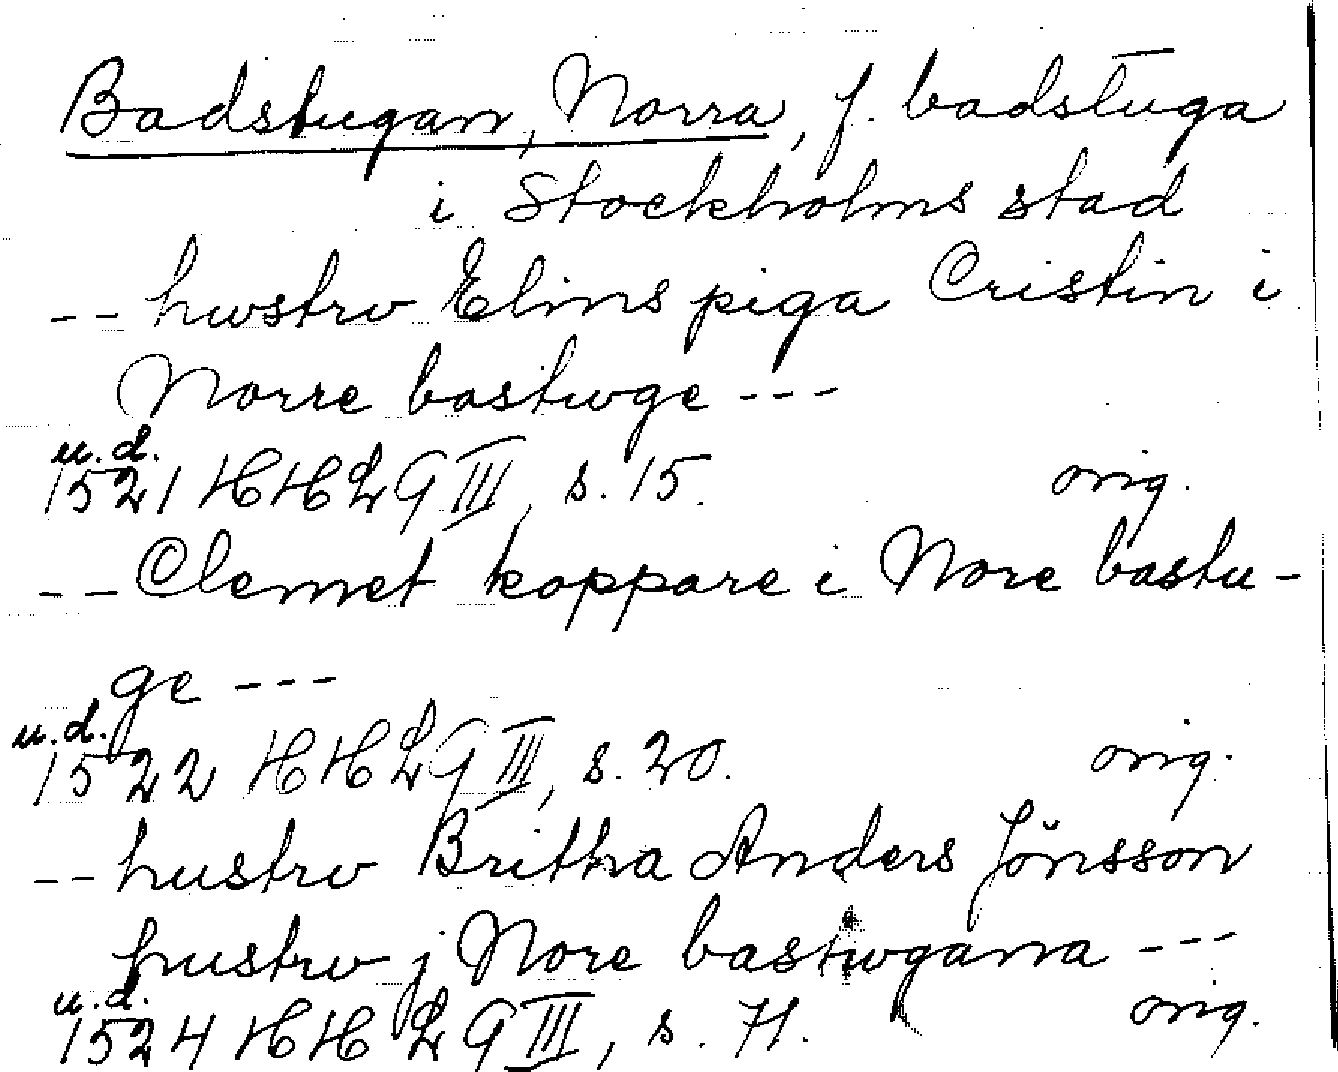 Badstugan, Norra, f. badstuga
i Stockholms stad
-- hwstrv Elins piga Cristin i
Norre bastwge ---
u.d.
1521 HHLG III, s. 15. orig.
-- Clemet koppare i Nore bastu-
ge ---
u.d.
1522 HHLG III, s. 20. orig.
-- hustrv Britha Anders Jönsson
hustrv j Nore bastwganna ---
u.d.
1524 HHLG III, s. 71. orig.